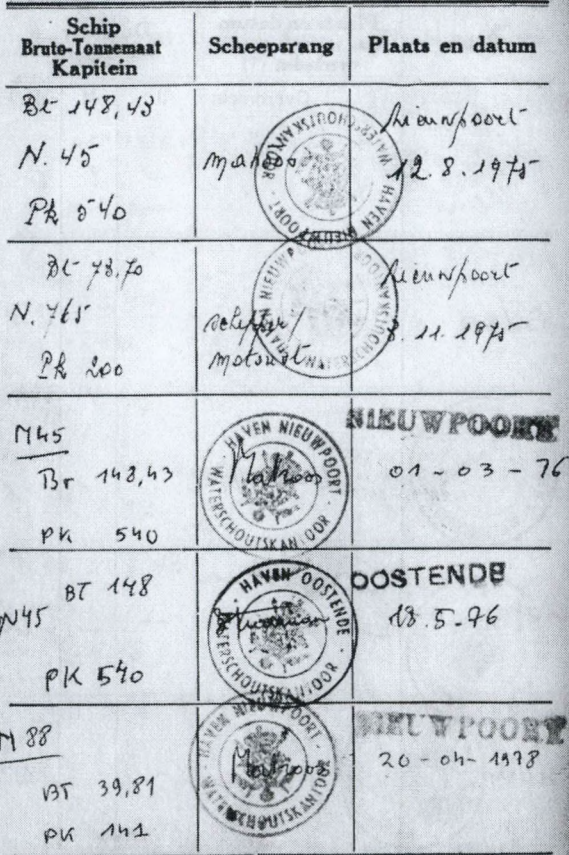 Schip
Bruto-Tonnemaat
Kapitein
Scheepsrang
Plaats en datum
Bt 148,43
N. 45
Pk 540
Matroos
HAVEN NIEUWPOORT
WATERSCHOUTSKANTOOR
Nieuwpoort
12.8.1975
Bt 78,70
N. 765
Pk 200
schipper/
motorist
HAVEN NIEUWPOORT
WATERSCHOUTSKANTOOR
Nieuwpoort
8.11.1975
N45
Br 148,43
PK 540
Matroos
HAVEN NIEUWPOORT
WATERSCHOUTSKANTOOR
NIEUWPOORT
01-03-76
BT 148
N45
PK 540
HAVEN OOSTENDE
WATERSCHOUTSKANTOOR
OOSTENDE
18.5.76
N 88
BT 39,81
PK 141
Matroos
HAVEN NIEUWPOORT
WATERSCHOUTSKANTOOR
NIEUWPOORT
20-04-1978